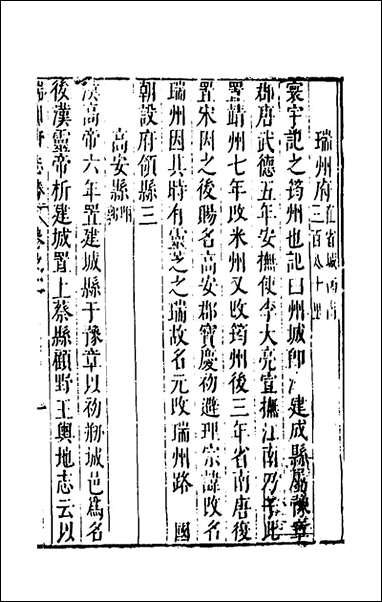 瑞州府在省城西南三百八十里
寰宇記之筠州也記曰州城即建成縣屬豫章
郡唐武德五年安撫使李大亮宣撫江南乃於此
置靖州七年改米州又改筠州後三年省南唐復
置宋因之後賜名高安郡寶慶初避理宗諱改名
瑞州因其時有靈芝之瑞故名元改瑞州路 國
朝設府領縣三
高安縣附郭
漢高帝六年置建城縣于豫章以初刱城邑爲名
後漢靈帝析建城置上蔡縣顧野王輿地志云以
瑞州府志卷